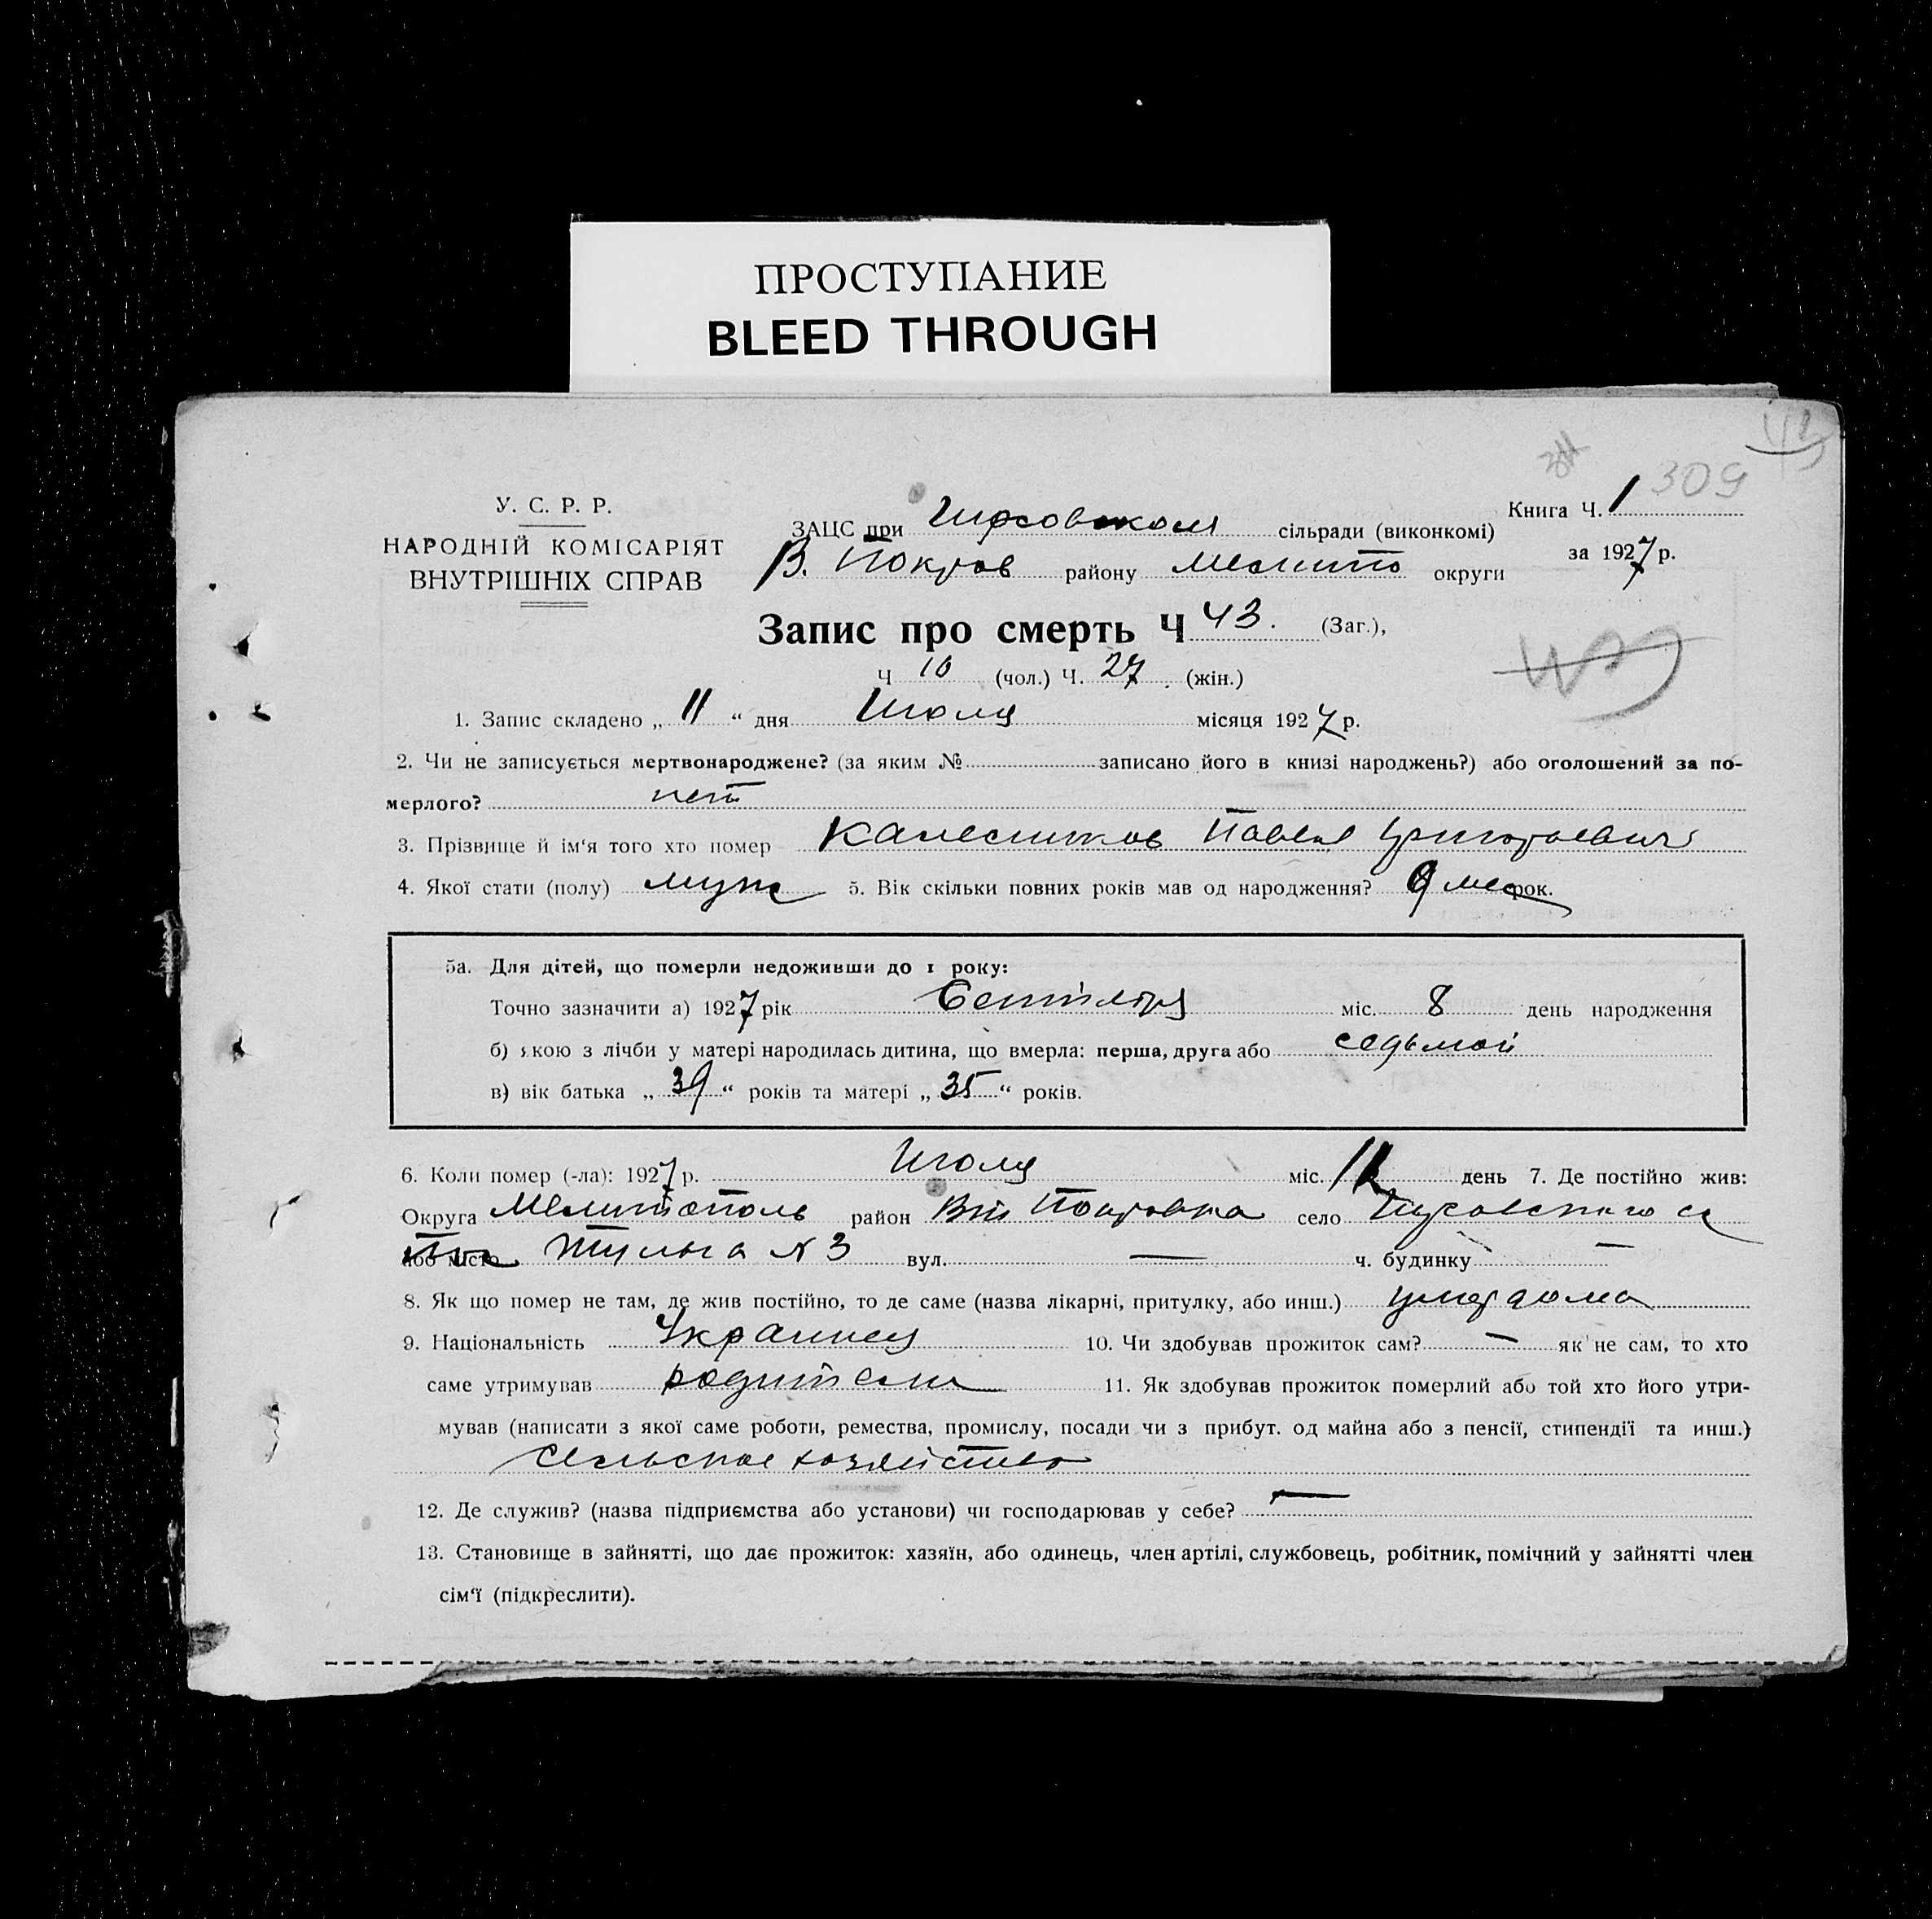 ПРОСТУПАНИЕ
BLEED THROUGH
309
У. С. Р. Р.
НАРОДНІЙ КОМІСАРІЯТ
ВНУТРІШНІХ СПРАВ
ЗАЦС при сільради (виконкомі)
В. Покров району Мелито округи
Книга Ч. 1
за 1927 р.
Запис про смерть Ч 43. (Заг.),
Ч 16 (чол.) Ч. 27 (жін.)
1. Запис складено „ 11 “ дня Июля місяця 1927 р.
2. Чи не записується мертвонароджене? (за яким № записано його в книзі народжень?) або оголошений за по-
мерлого? нет
3. Прізвище й ім‘я того хто помер Калесников Павел Григорьевич
4. Якої стати (полу) муж 5. Вік скільки повних років мав од народження? 9 мес рок.
5а. Для дітей, що померли недоживши до 1 року:
Точно зазначити а) 1927 рік Сентября міс. 8 день народження
б) якою з лічби у матері народилась дитина, що вмерла: перша, друга або седьмой
в) вік батька „ 39 “ років та матері „ 35 “ років.
6. Коли помер (-ла): 1927 р. Июля міс. день 7. Де постійно жив:
Округа Мелитополь район Вел Покровка село
або місто №3 вул. — ч. будинку —
8. Як що помер не там, де жив постійно, то де саме (назва лікарні, притулку, або инш.) умер дома
9. Національність Украинец 10. Чи здобував прожиток сам? — як не сам, то хто
саме утримував родители 11. Як здобував прожиток померлий або той хто його утри-
мував (написати з якої саме роботи, ремества, промислу, посади чи з прибут. од майна або з пенсії, стипендії та инш.)
Сельское хозяйство
12. Де служив? (назва підприємства або установи) чи господарював у себе? —
13. Становище в зайнятті, що дає прожиток: хазяїн, або одинець, член артілі, службовець, робітник, помічний у зайнятті член
сім‘ї (підкреслити).